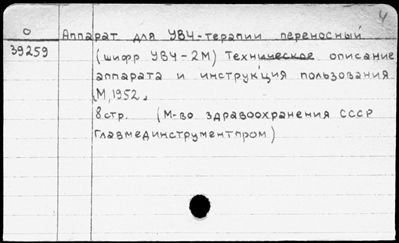 4
О
Аппарат для УВЧ-терапии переносный
39259
(шифр УВЧ-2М) Техническое описание
аппарата и инструкция пользования
М, 1952.
8 стр. (М-во здравоохранения СССР
Главмединструментпром)